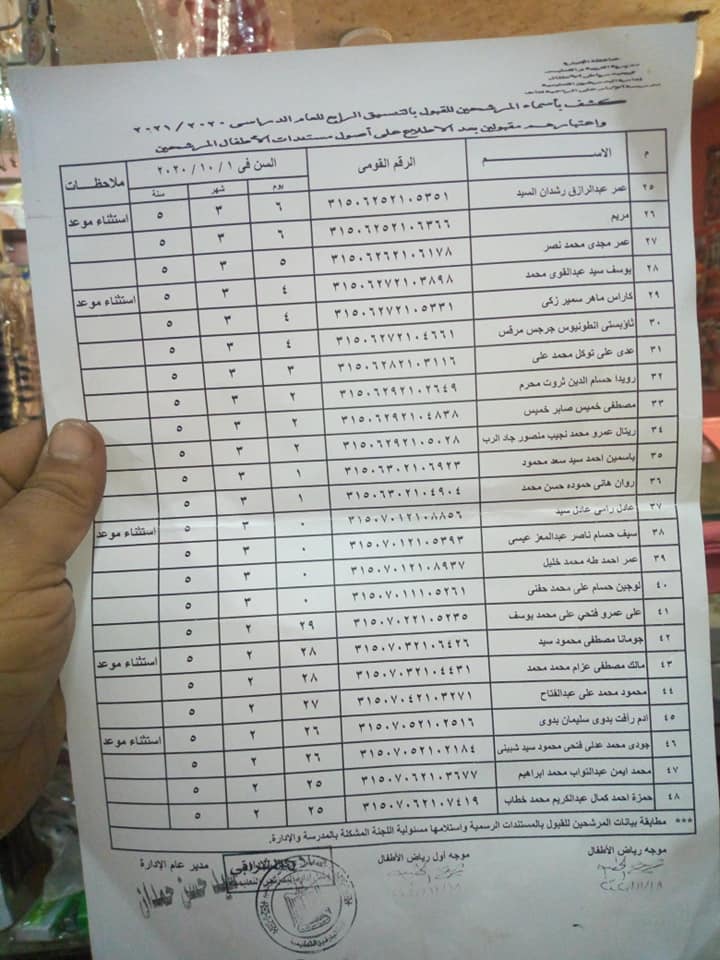 محافظة الجيزة
كشف بأسماء المرشحين للقبول بالتنسيق الرابع للعام الدراسى ٢٠٢٠ / ٢٠٢١
واعتبارهم مقبولين بعد الاطلاع على أصول مستندات الأطفال المرشحين
م الاســـــم الرقم القومى السن فى ١ / ١٠ / ٢٠٢٠ ملاحظات
يوم شهر سنة
٢٥ عمر عبدالرازق رشدان السيد ٣١٥٠٦٢٥٢١٠٥٣٥١ ٦ ٣ ٥ استثناء موعد
٢٦ مريم ٣١٥٠٦٢٥٢١٠٦٣٦٦ ٦ ٣ ٥
٢٧ عمر مجدى محمد نصر ٣١٥٠٦٢٦٢١٠٦١٧٨ ٥ ٣ ٥
٢٨ يوسف سيد عبدالقوى محمد ٣١٥٠٦٢٧٢١٠٣٨٩٨ ٤ ٣ ٥ استثناء موعد
٢٩ كاراس ماهر سمير زكى ٣١٥٠٦٢٧٢١٠٥٣٣١ ٤ ٣ ٥
٣٠ ثاؤبستى انطونيوس جرجس مرقس ٣١٥٠٦٢٧٢١٠٤٦٦١ ٤ ٣ ٥
٣١ عدى على توكل محمد على ٣١٥٠٦٢٨٢١٠٣١١٦ ٣ ٣ ٥
٣٢ رويدا حسام الدين ثروت محرم ٣١٥٠٦٢٩٢١٠٢٦٤٩ ٢ ٣ ٥
٣٣ مصطفى خميس صابر خميس ٣١٥٠٦٢٩٢١٠٤٨٣٨ ٢ ٣ ٥
٣٤ ريتال عمرو محمد نجيب منصور جاد الرب ٣١٥٠٦٢٩٢١٠٥٠٢٨ ٢ ٣ ٥
٣٥ ياسمين احمد سيد سعد محمود ٣١٥٠٦٣٠٢١٠٦٩٢٣ ١ ٣ ٥
٣٦ روان هانى حموده حسن محمد ٣١٥٠٦٣٠٢١٠٤٩٠٤ ١ ٣ ٥
٣٧ عادل رامى عادل سيد ٣١٥٠٧٠١٢١٠٨٨٥٦ ٠ ٣ ٥ استثناء موعد
٣٨ سيف حسام ناصر عبدالمعز عيسى ٣١٥٠٧٠١٢١٠٥٣٩٣ ٠ ٣ ٥
٣٩ عمر احمد طه محمد خليل ٣١٥٠٧٠١٢١٠٨٩٣٧ ٠ ٣ ٥
٤٠ لوجين حسام على محمد حفنى ٣١٥٠٧٠١١١٠٥٢٦١ ٠ ٣ ٥
٤١ على عمرو فتحي على محمد يوسف ٣١٥٠٧٠٢٢١٠٥٢٣٥ ٢٩ ٢ ٥
٤٢ جومانا مصطفى محمود سيد ٣١٥٠٧٠٣٢١٠٦٤٢٦ ٢٨ ٢ ٥ استثناء موعد
٤٣ مالك مصطفى عزام محمد محمد ٣١٥٠٧٠٣٢١٠٤٤٣١ ٢٨ ٢ ٥
٤٤ محمود محمد على عبدالفتاح ٣١٥٠٧٠٤٢١٠٣٢٧١ ٢٧ ٢ ٥
٤٥ ادم رافت بدوى سليمان بدوى ٣١٥٠٧٠٥٢١٠٢٥١٦ ٢٦ ٢ ٥ استثناء موعد
٤٦ جودى محمد عدلى فتحى محمود سيد شبينى ٣١٥٠٧٠٥٢١٠٢١٨٤ ٢٦ ٢ ٥
٤٧ محمد ايمن عبدالتواب محمد ابراهيم ٣١٥٠٧٠٦٢١٠٣٦٧٧ ٢٥ ٢ ٥
٤٨ حمزة احمد كمال عبدالكريم محمد خطاب ٣١٥٠٧٠٦٢١٠٧٤١٩ ٢٥ ٢ ٥
*** مطابقة بيانات المرشحين للقبول بالمستندات الرسمية واستلامها مسئولية اللجنة المشكلة بالمدرسة والإدارة.
موجه رياض الأطفال موجه أول رياض الأطفال مدير عام الإدارة